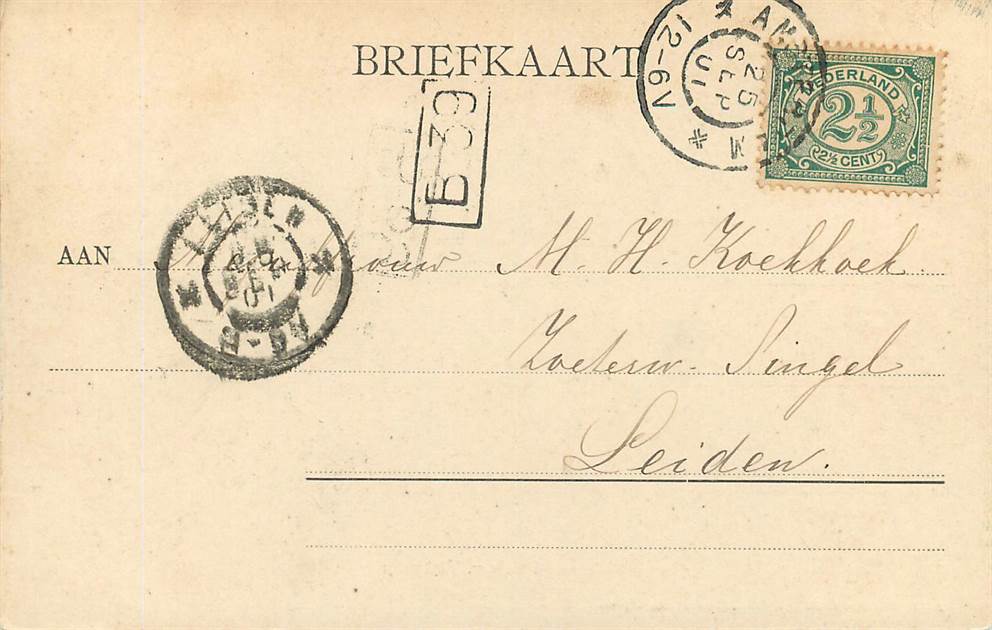 BRIEFKAART
AMSTERDAM
25
SEP
01
12-6V
NEDERLAND
2½
2½ CENT
B 39
LEIDEN
01
AAN Mejufvrouw M. H. Koekkoek.
Zoeterw. Singel
Leiden.